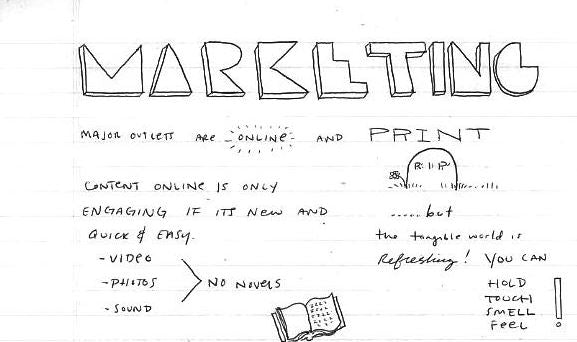 MARKETING
MAJOR OUTLETS ARE ONLINE AND PRINT
R.I.P.
CONTENT ONLINE IS ONLY
ENGAGING IF ITS NEW AND
QUICK & EASY.
- VIDEO
- PHOTOS
- SOUND
NO NOVELS
......but
the tangible world is
Refreshing! YOU CAN
HOLD
TOUCH
SMELL
FEEL !